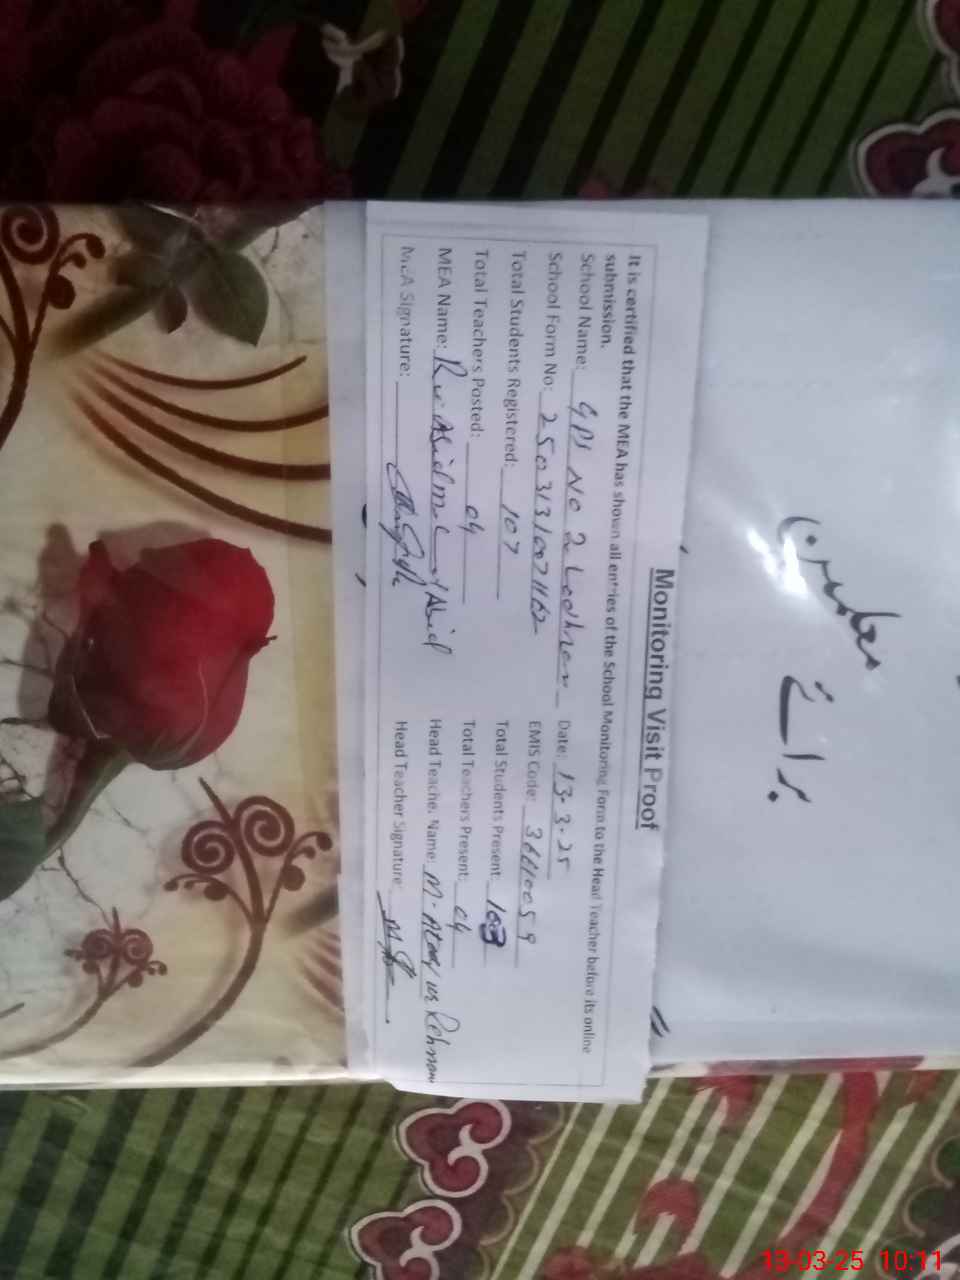 برائے معلمین
Monitoring Visit Proof
It is certified that the MEA has shown all entries of the School Monitoring Form to the Head Teacher before its online
submission.
School Name: GPS No 2 Lodhran Date: 13-3-25
School Form No: EMIS Code:
Total Students Registered: 107 Total Students Present: 103
Total Teachers Posted: 04 Total Teachers Present: 04
MEA Name: Abid Head Teacher Name: M. Rehman
MEA Signature: Head Teacher Signature:
13-03-25 10:11